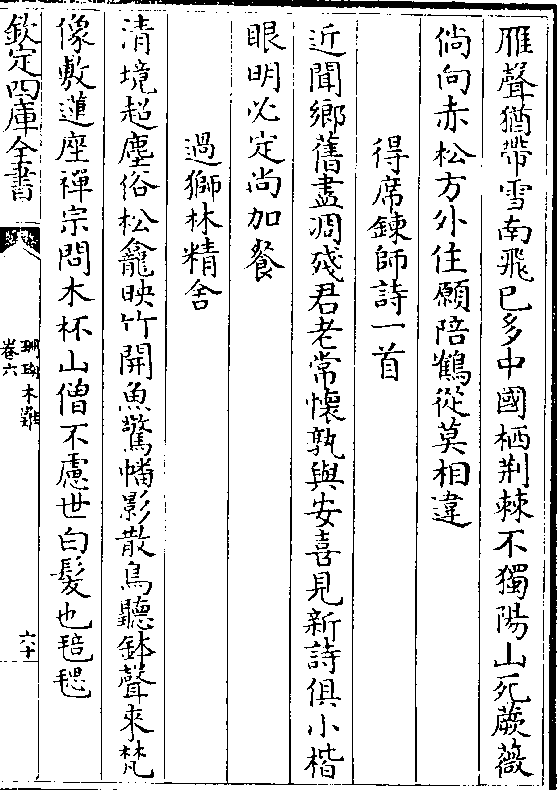 雁聲猶帶雪南飛已多中國栖荆棘不獨陽山死蕨薇
倘向赤松方外住願陪鶴從莫相違
得席鍊師詩一首
近聞鄉舊盡凋殘君老常懷孰與安喜見新詩俱小楷
眼明必定尚加餐
過獅林精舍
清境超塵俗松龕映竹開魚驚幡影散鳥聽鉢聲來梵
像敷蓮座禪宗問木杯山僧不慮世白髪也毰毸
欽定四庫全書
珊瑚木難
卷六
六十